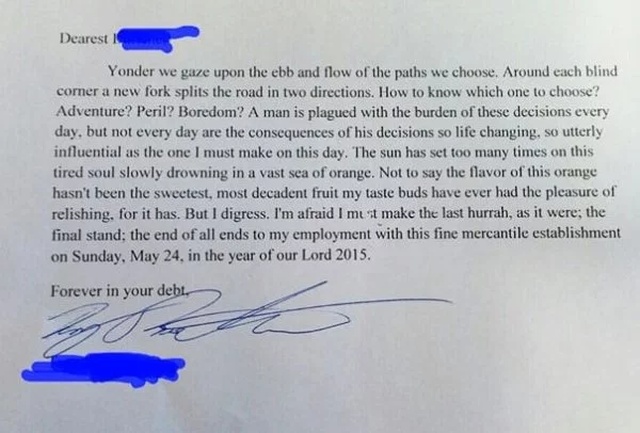 Dearest
Yonder we gaze upon the ebb and flow of the paths we choose. Around each blind
corner a new fork splits the road in two directions. How to know which one to choose?
Adventure? Peril? Boredom? A man is plagued with the burden of these decisions every
day, but not every day are the consequences of his decisions so life changing, so utterly
influential as the one I must make on this day. The sun has set too many times on this
tired soul slowly drowning in a vast sea of orange. Not to say the flavor of this orange
hasn't been the sweetest, most decadent fruit my taste buds have ever had the pleasure of
relishing, for it has. But I digress. I'm afraid I must make the last hurrah, as it were; the
final stand; the end of all ends to my employment with this fine mercantile establishment
on Sunday, May 24, in the year of our Lord 2015.
Forever in your debt,